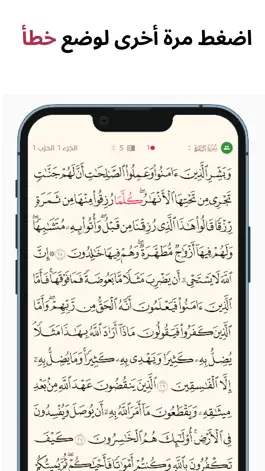 اضغط مرة أخرى لوضع خطأ
سُورَةُ البَقَرَةِ 1 5 الجزء 1 الحزب 1
وَبَشِّرِ ٱلَّذِينَ ءَامَنُوا۟ وَعَمِلُوا۟ ٱلصَّٰلِحَٰتِ أَنَّ لَهُمْ جَنَّٰتٍ
تَجْرِى مِن تَحْتِهَا ٱلْأَنْهَٰرُ ۖ كُلَّمَا رُزِقُوا۟ مِنْهَا مِن ثَمَرَةٍ
رِّزْقًا ۙ قَالُوا۟ هَٰذَا ٱلَّذِى رُزِقْنَا مِن قَبْلُ ۖ وَأُتُوا۟ بِهِۦ مُتَشَٰبِهًا ۖ
وَلَهُمْ فِيهَآ أَزْوَٰجٌ مُّطَهَّرَةٌ ۖ وَهُمْ فِيهَا خَٰلِدُونَ ٢٥ ۞ إِنَّ
ٱللَّهَ لَا يَسْتَحْىِۦٓ أَن يَضْرِبَ مَثَلًا مَّا بَعُوضَةً فَمَا فَوْقَهَا ۚ فَأَمَّا
ٱلَّذِينَ ءَامَنُوا۟ فَيَعْلَمُونَ أَنَّهُ ٱلْحَقُّ مِن رَّبِّهِمْ ۖ وَأَمَّا
ٱلَّذِينَ كَفَرُوا۟ فَيَقُولُونَ مَاذَآ أَرَادَ ٱللَّهُ بِهَٰذَا مَثَلًا ۘ
يُضِلُّ بِهِۦ كَثِيرًا وَيَهْدِى بِهِۦ كَثِيرًا ۚ وَمَا يُضِلُّ بِهِۦٓ
إِلَّا ٱلْفَٰسِقِينَ ٢٦ ٱلَّذِينَ يَنقُضُونَ عَهْدَ ٱللَّهِ مِنۢ بَعْدِ
مِيثَٰقِهِۦ وَيَقْطَعُونَ مَآ أَمَرَ ٱللَّهُ بِهِۦٓ أَن يُوصَلَ وَيُفْسِدُونَ
فِى ٱلْأَرْضِ ۚ أُو۟لَٰٓئِكَ هُمُ ٱلْخَٰسِرُونَ ٢٧ كَيْفَ
تَكْفُرُونَ بِٱللَّهِ وَكُنتُمْ أَمْوَٰتًا فَأَحْيَٰكُمْ ۖ ثُمَّ يُمِيتُكُمْ